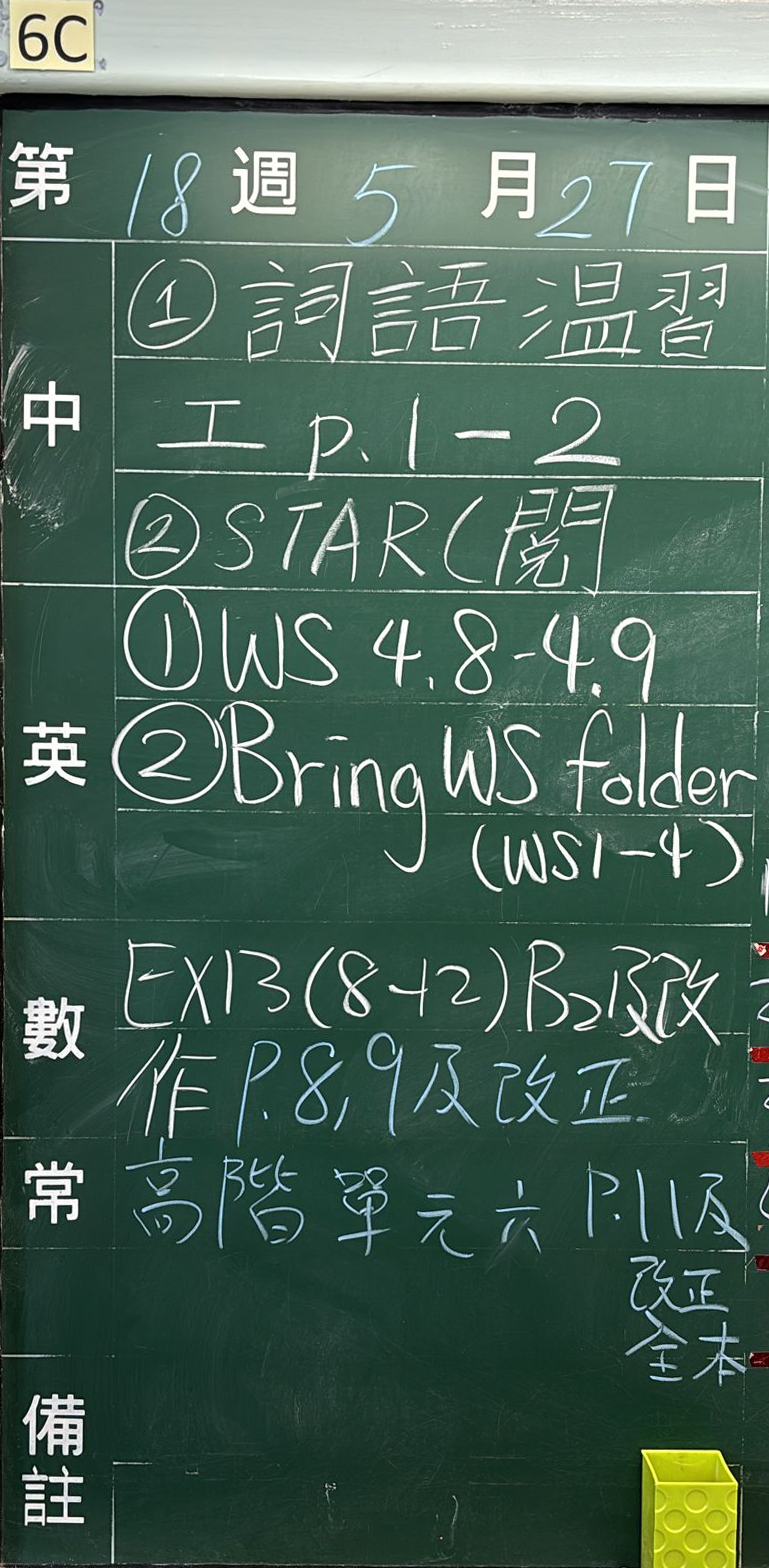 6C
第 18 週 5 月 27 日
中
① 詞語温習
工 p.1-2
② STAR(閱
英
① WS 4.8-4.9
② Bring WS folder
(WS1-4)
數
EX13(8-12)B2及改
作 P.8,9及改正
常
高階單元六 P.11及
改正
全本
備註